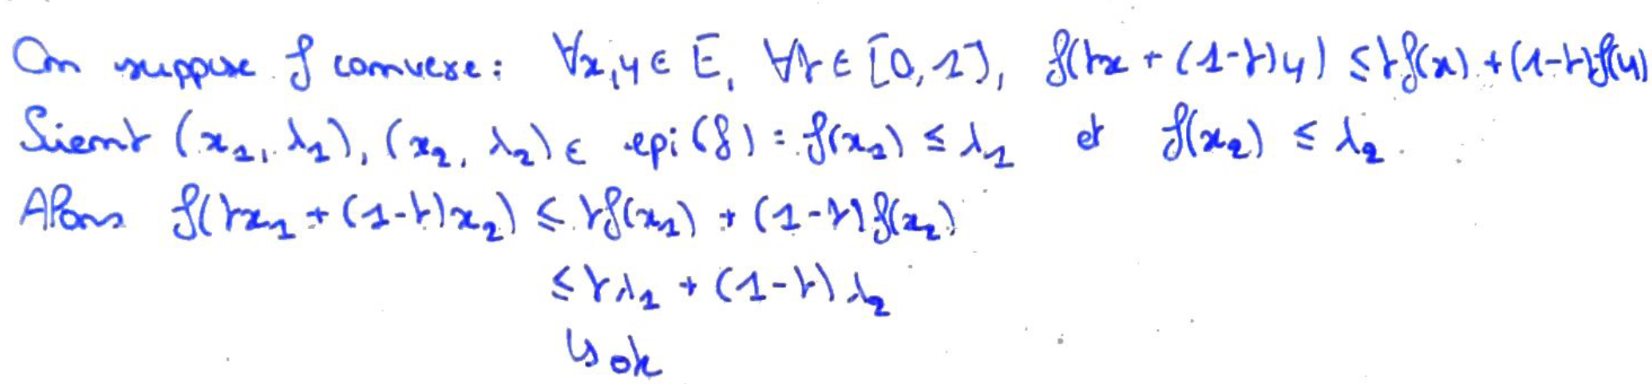 On suppose f convexe : ∀x,y ∈ E, ∀t ∈ [0,1], f(tx + (1-t)y) ≤ tf(x) + (1-t)f(y)
Soient (x₁, λ₁), (x₂, λ₂) ∈ epi(f) : f(x₁) ≤ λ₁ et f(x₂) ≤ λ₂.
Alors f(tx₁ + (1-t)x₂) ≤ tf(x₁) + (1-t)f(x₂)
≤ tλ₁ + (1-t)λ₂
↳ ok